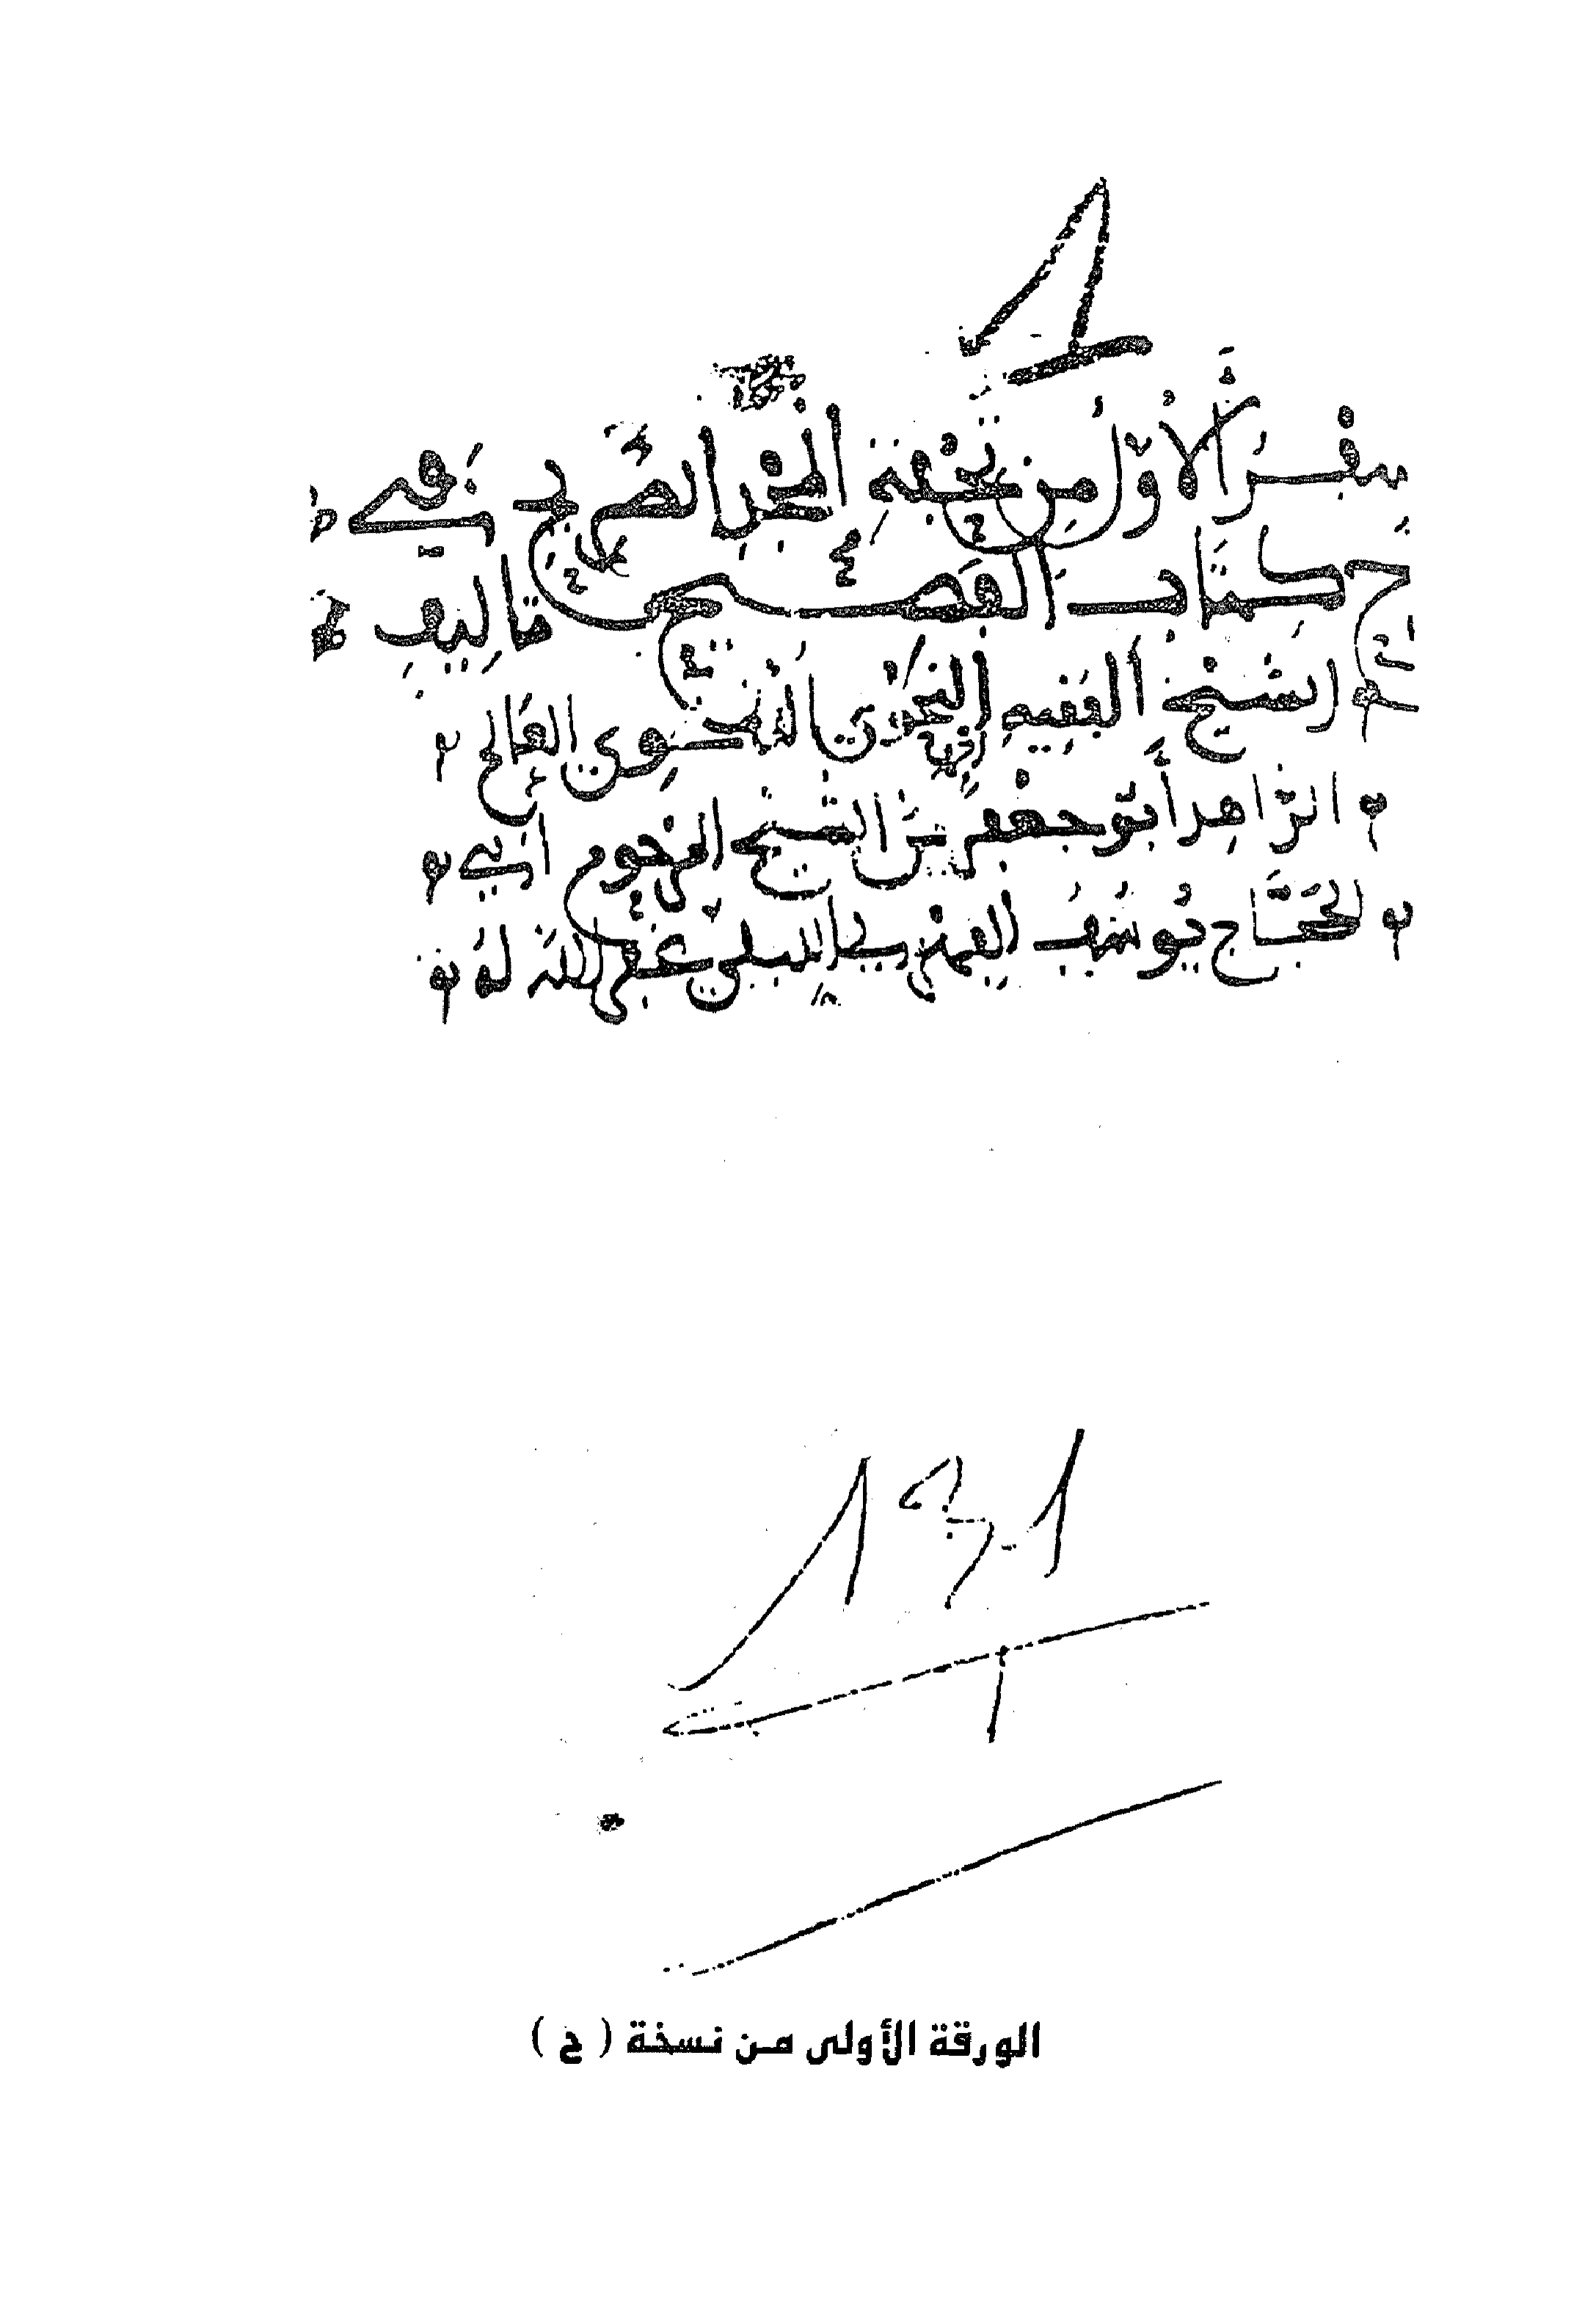 1
سفر الأول من تحفة المجد الصريح في
ح كتاب الفصيح تأليف
الشيخ الفقيه النحوي اللغوي
الزاهد أبو جعفر بن الشيخ المرحوم أبي
الحجاج يوسف الفهري اللبلي غفر الله له
131
الورقة الأولى من نسخة ( ح )